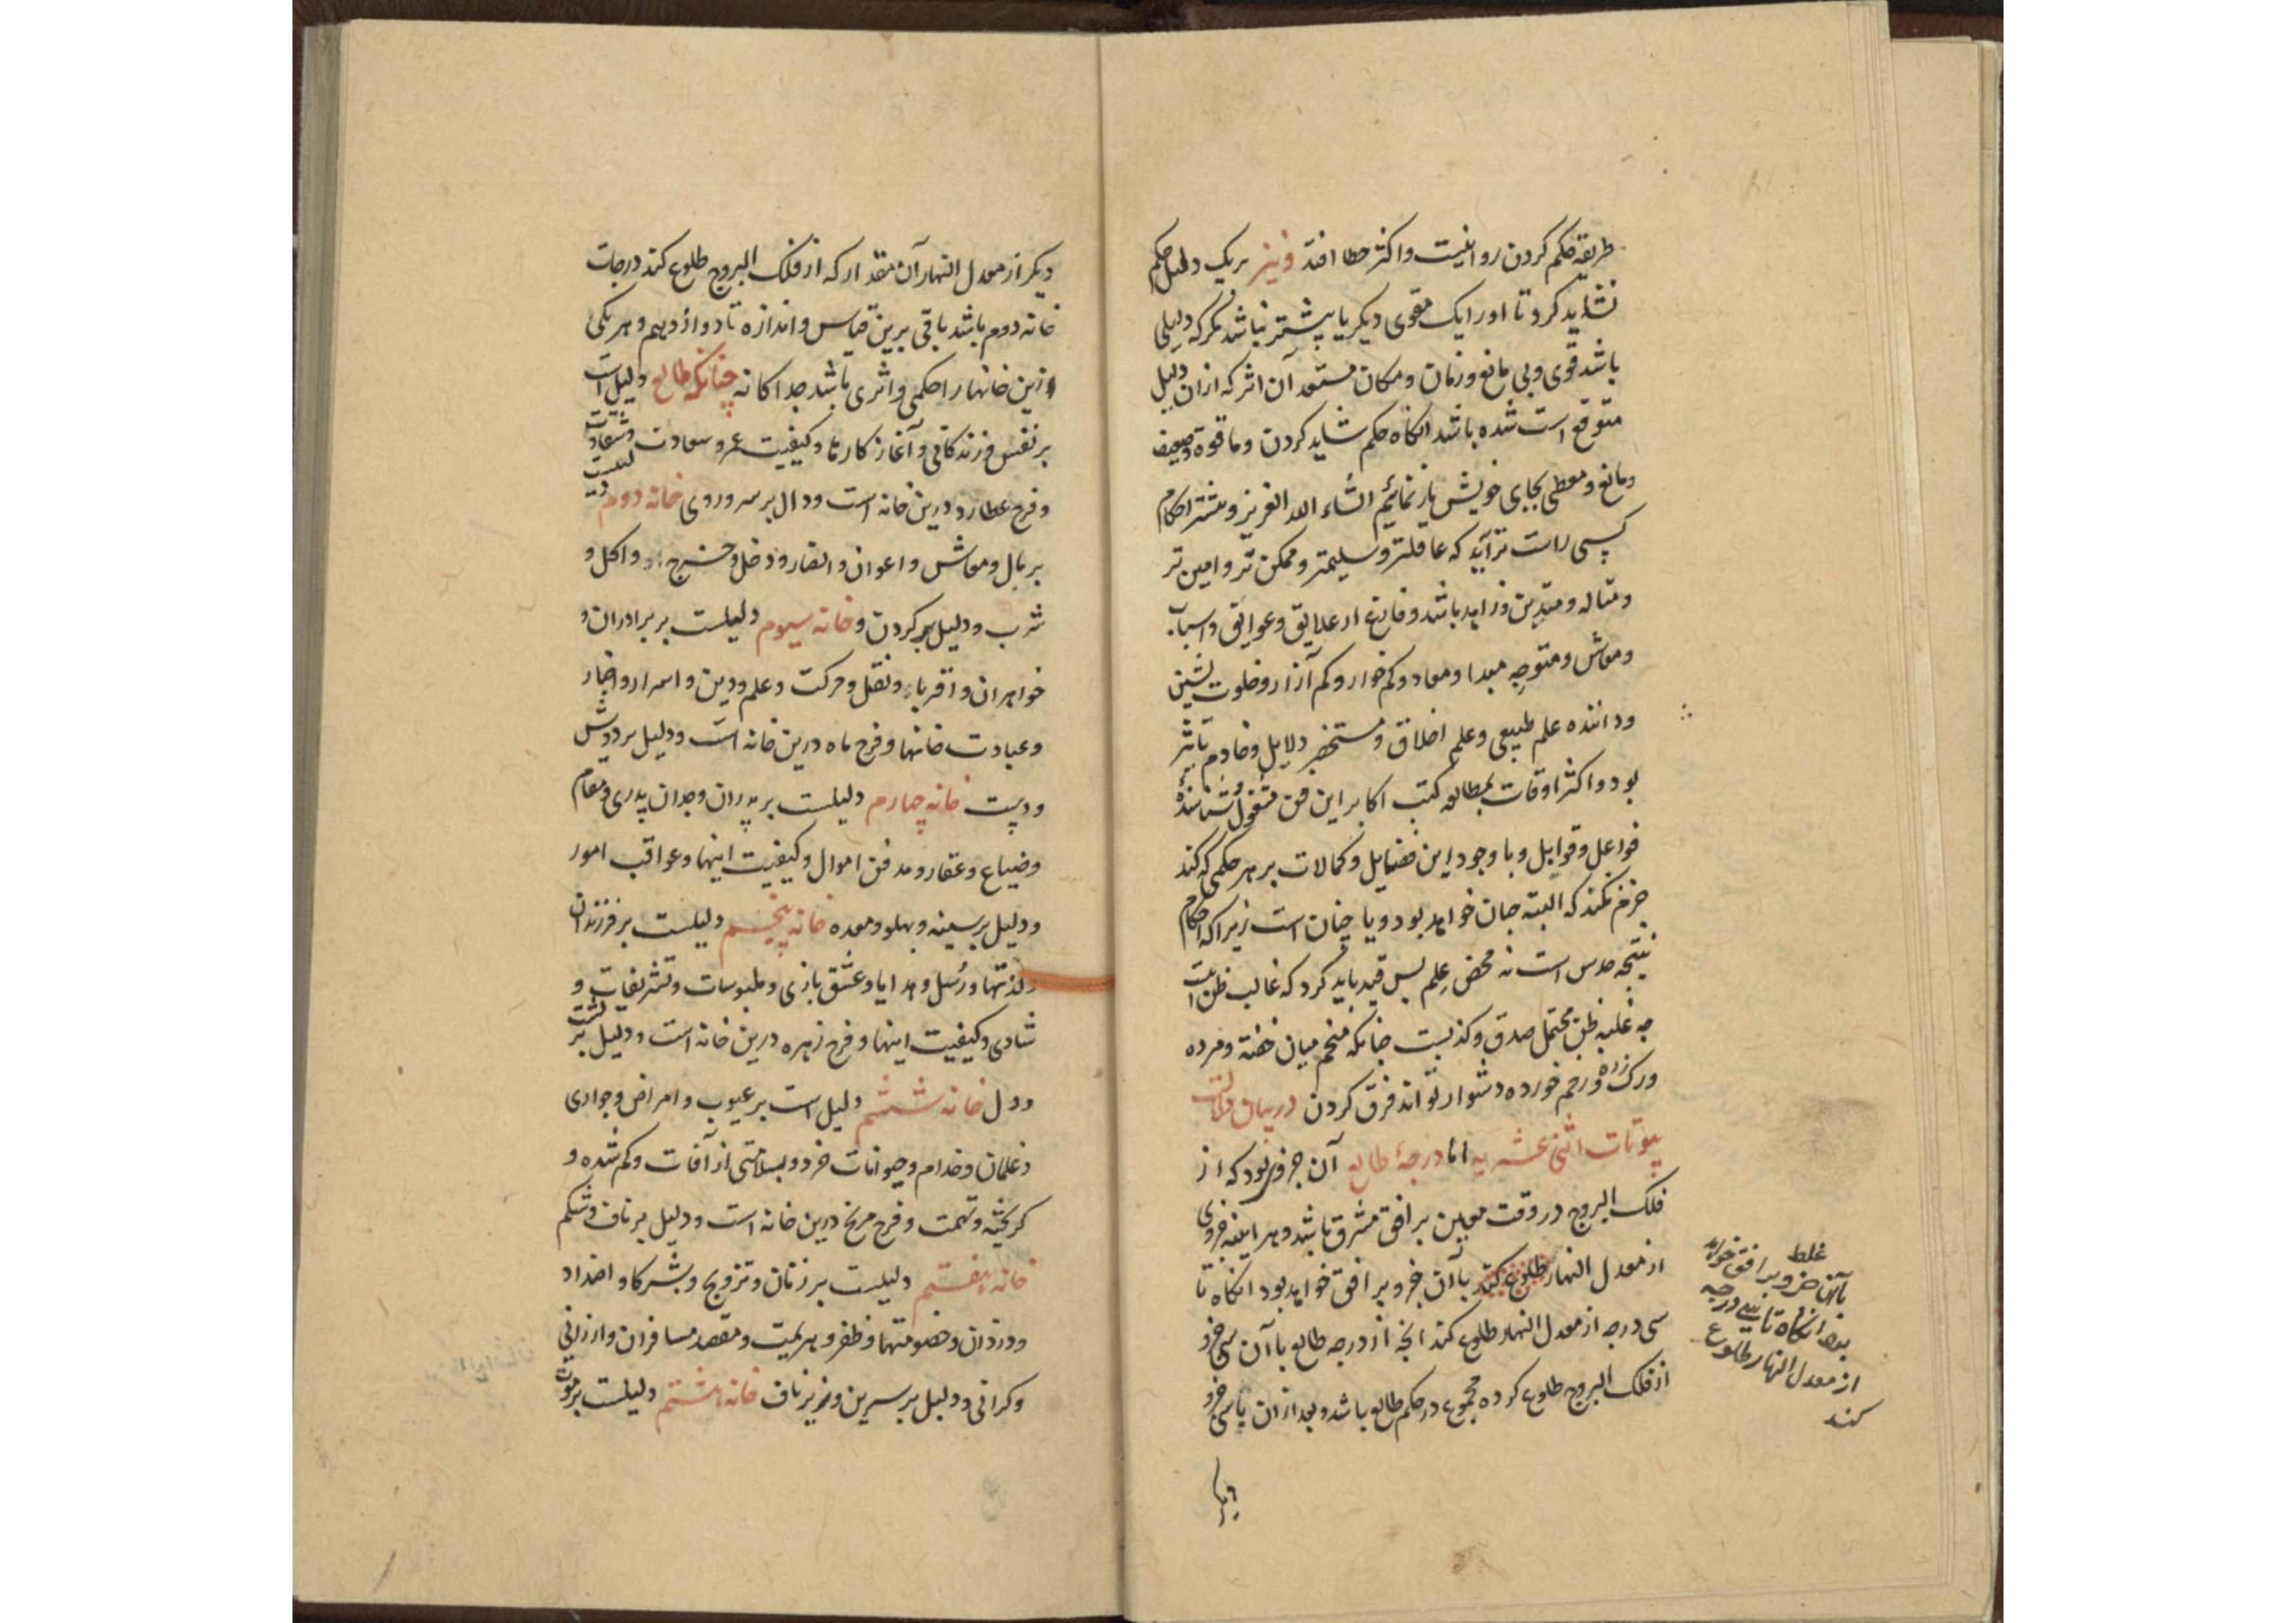 طریقه حکم کردن روا نیست و اکثر خطا افتد و نیز بریک دلیل حکم
نشاید کرد تا او را یک مقوی دیکر یا پیشتر نباشد مکر که دلیلی
باشد قوی و بی مانع و زمان و مکان مستعد آن اثر که ازان دلیل
متوقع است شده باشد انکاه حکم شاید کردن و ما قوة وضعیف
و مانع و معطی بجای خویش باز نمائیم انشاء الله العزیز و بیشتر احکام
کسی راست تر آید که عاقلتر و سلیمتر و ممکن تر و امین تر
و متاله و متدین و زاهد باشد و فارغ از علایق و عوایق و اسباب
و معاش و متوجه مبدا و معاد و کم خوار و کم آزار و خلوت نشین
و داننده علم طبیعی و علم اخلاق و مستحضر دلایل و خادم تاثیر
بود و اکثر اوقات بمطالعه کتب اکابر این فن مشغول و شناسنده
فواعل و قوابل و با وجود این فضایل و کمالات بر هر حکمی که کند
جزم نکند که البته چنان خواهد بود و یا چنان است زیرا که احکام
نتیجه حدس است نه محض علم پس قید باید کرد که غالب ظن است
چه غلبه ظن محتمل صدق و کذبست چنانکه منجم میان خفته و مرده
و رک زده و زخم خورده دشوار تواند فرق کردن در بیان دلالات
بیوتات اثنی عشریه اما درجهٔ طالع آن جزوی بود که از
فلک البروج در وقت معین بر افق مشرق باشد و هر آینه جزوی
از معدل النهار طلوع کند با آن جزو بر افق خواهد بود انکاه تا
سی درجه از معدل النهار طلوع کند انچه از درجه طالع با آن سی جزو
از فلک البروج طلوع کرده مجموع در حکم طالع باشد و بعد ازان با سی جزو
غلط
با آن جزو بر افق خواهد
بود انکاه تا سی درجه
از معدل النهار طلوع
کند
دیکر از معدل النهار آن مقدار که از فلک البروج طلوع کند درجات
خانه دوم باشد باقی برین قیاس و اندازه تا دوازدهم و هر یکی
ازین خانها را حکمی و اثری باشد جداکانه چنانکه طالع دلیل است
بر نفس و زندکانی و آغاز کارها و کیفیت عمر و سعادت و شقاوت
و فرح عطارد درین خانه است و دال بر سر و روی خانه دوم دلیلست
بر مال و معاش و اعوان و انصار و دخل و خرج و اکل و
شرب و دلیل بر کردن و خانه سیوم دلیلست بر برادران و
خواهران و اقرباء و نقل و حرکت و علم و دین و اسرار و اخبار
و عبادت خانها و فرح ماه درین خانه است و دلیل بر دوش
و دست خانه چهارم دلیلست بر پدران و جدان پدری و مقام
و ضیاع و عقار و مدفن اموال و کیفیت اینها و عواقب امور
و دلیل بر سینه و پهلو و معده خانه پنجم دلیلست بر فرزندان
و لذتها و رُسل و هدایا و عشق بازی و ملبوسات و تشریفات و
شادی و کیفیت اینها و فرح زهره درین خانه است و دلیل بر پشت
و دل خانه ششم دلیل است بر عیوب و امراض و جواری
و غلمان و خدام و حیوانات خرد و بسلامتی از آفات و کم شده و
کریخته و تهمت و فرح مریخ درین خانه است و دلیل بر ناف و شکم
خانه هفتم دلیلست بر زنان و تزویج و شرکا و اضداد
و دزدان و خصومتها و ظفر و هزیمت و مقصد مسافران و ارزانی
و کرانی و دلیل بر سرین و زیر ناف خانه هشتم دلیلست بر موت